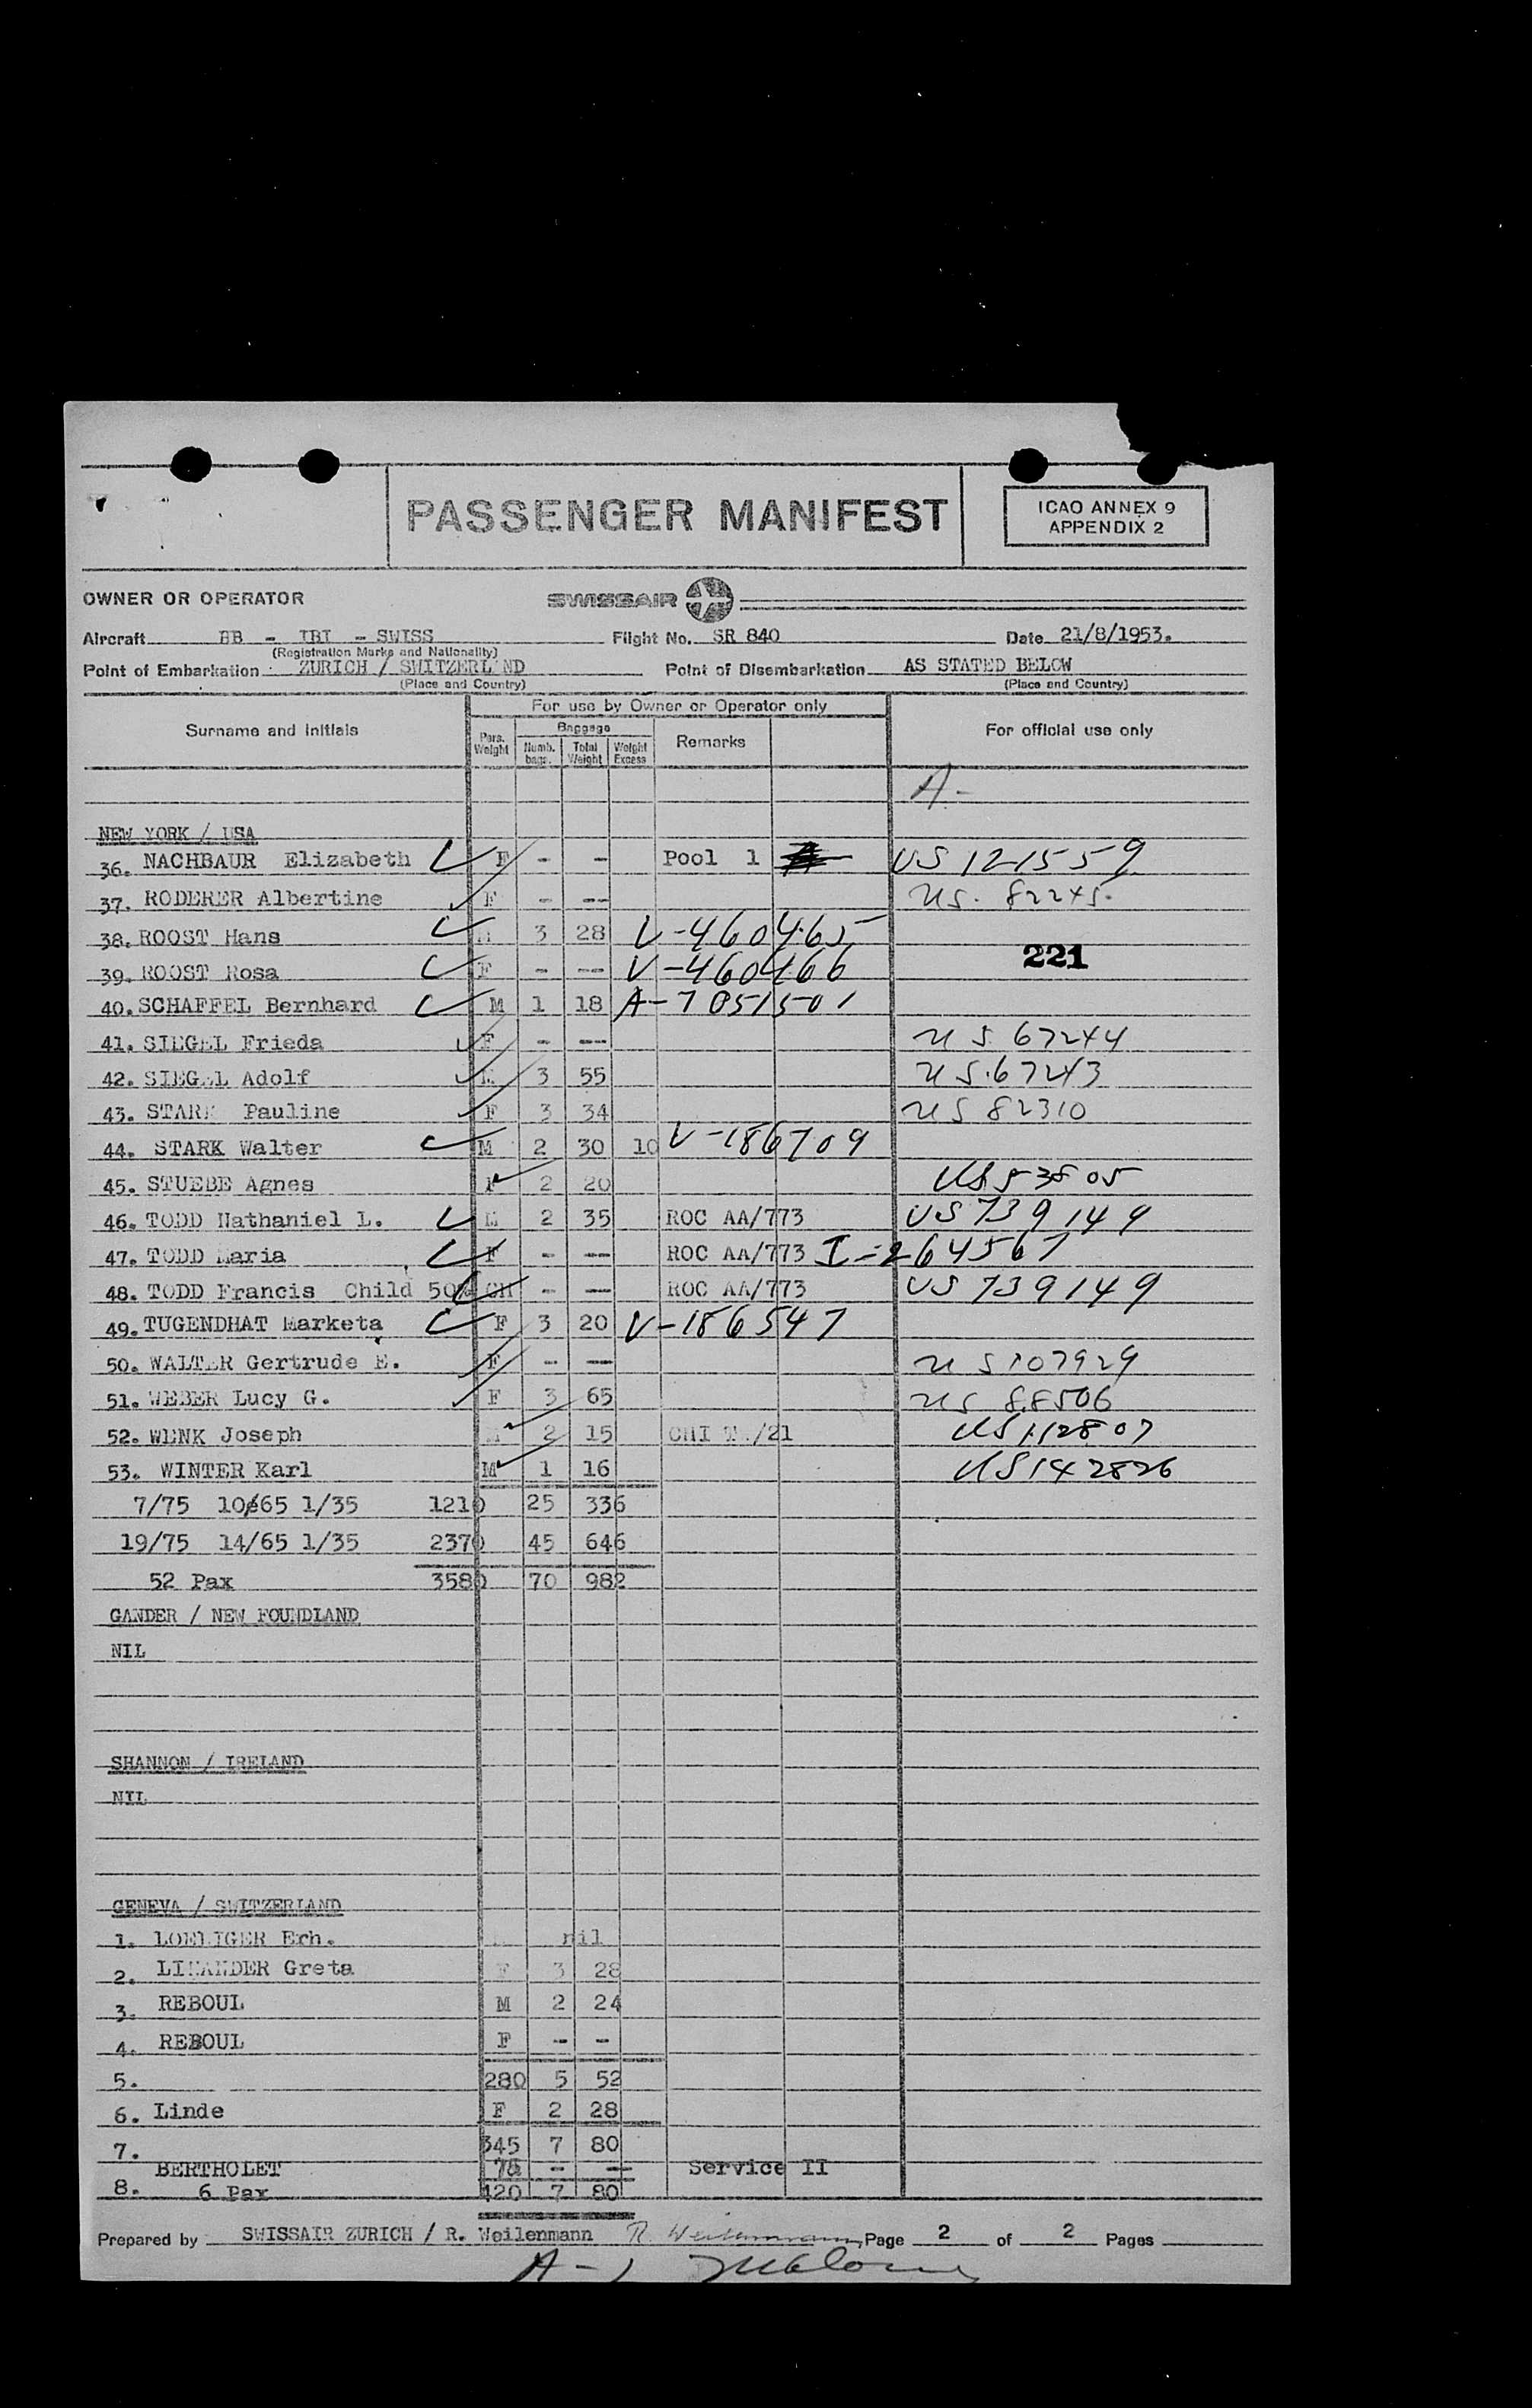 PASSENGER MANIFEST
ICAO ANNEX 9
APPENDIX 2
OWNER OR OPERATOR SWISSAIR
Aircraft HB - IBI - SWISS Flight No. SR 840 Date 21/8/1953.
(Registration Marks and Nationality)
Point of Embarkation ZURICH / SWITZERLAND Point of Disembarkation AS STATED BELOW
(Place and Country) (Place and Country)
For use by Owner or Operator only
Surname and initials Pers. Weight Baggage Numb. bags. Total Weight Weight Excess Remarks For official use only
A-
NEW YORK / USA
36. NACHBAUR Elizabeth F - - Pool 1 US 121559
37. RODERER Albertine F - -- US. 82245.
38. ROOST Hans M 3 28 V-460465
39. ROOST Rosa F - -- V-460466
221
40. SCHAFFEL Bernhard M 1 18 A-7051501
41. SIEGEL Frieda F - -- US 67244
42. SIEGEL Adolf M 3 55 US.67243
43. STARK Pauline F 3 34 US 82310
44. STARK Walter M 2 30 10 V-186709
45. STUEBE Agnes F 2 20 US 53805
46. TODD Nathaniel L. M 2 35 ROC AA/773 US 739149
47. TODD Maria F - -- ROC AA/773 I-264567
48. TODD Francis Child 50% CH - -- ROC AA/773 US 739149
49. TUGENDHAT Marketa F 3 20 V-186547
50. WALTER Gertrude E. F -- -- US 107929
51. WEBER Lucy G. F 3 65 US 88506
52. WENK Joseph M 2 15 CHI /21 US 112807
53. WINTER Karl M 1 16 US 142826
7/75 10/65 1/35 1210 25 336
19/75 14/65 1/35 2370 45 646
52 Pax 3580 70 982
GANDER / NEW FOUNDLAND
NIL
SHANNON / IRELAND
NIL
GENEVA / SWITZERLAND
1. LOELIGER Erh. nil
2. Greta F 3 28
3. REBOUL M 2 24
4. REBOUL F - -
5. 280 5 52
6. Linde F 2 28
7. 345 7 80
BERTHOLET 75 - -- Service II
8. 6 Pax 420 7 80
Prepared by SWISSAIR ZURICH / R. Weilenmann R. Weilenmann Page 2 of 2 Pages
A-